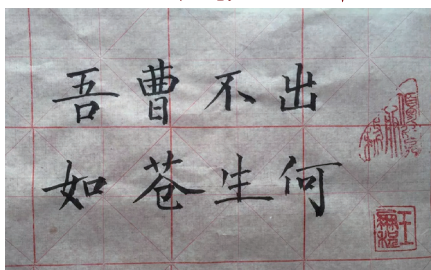 吾曹不出
如苍生何